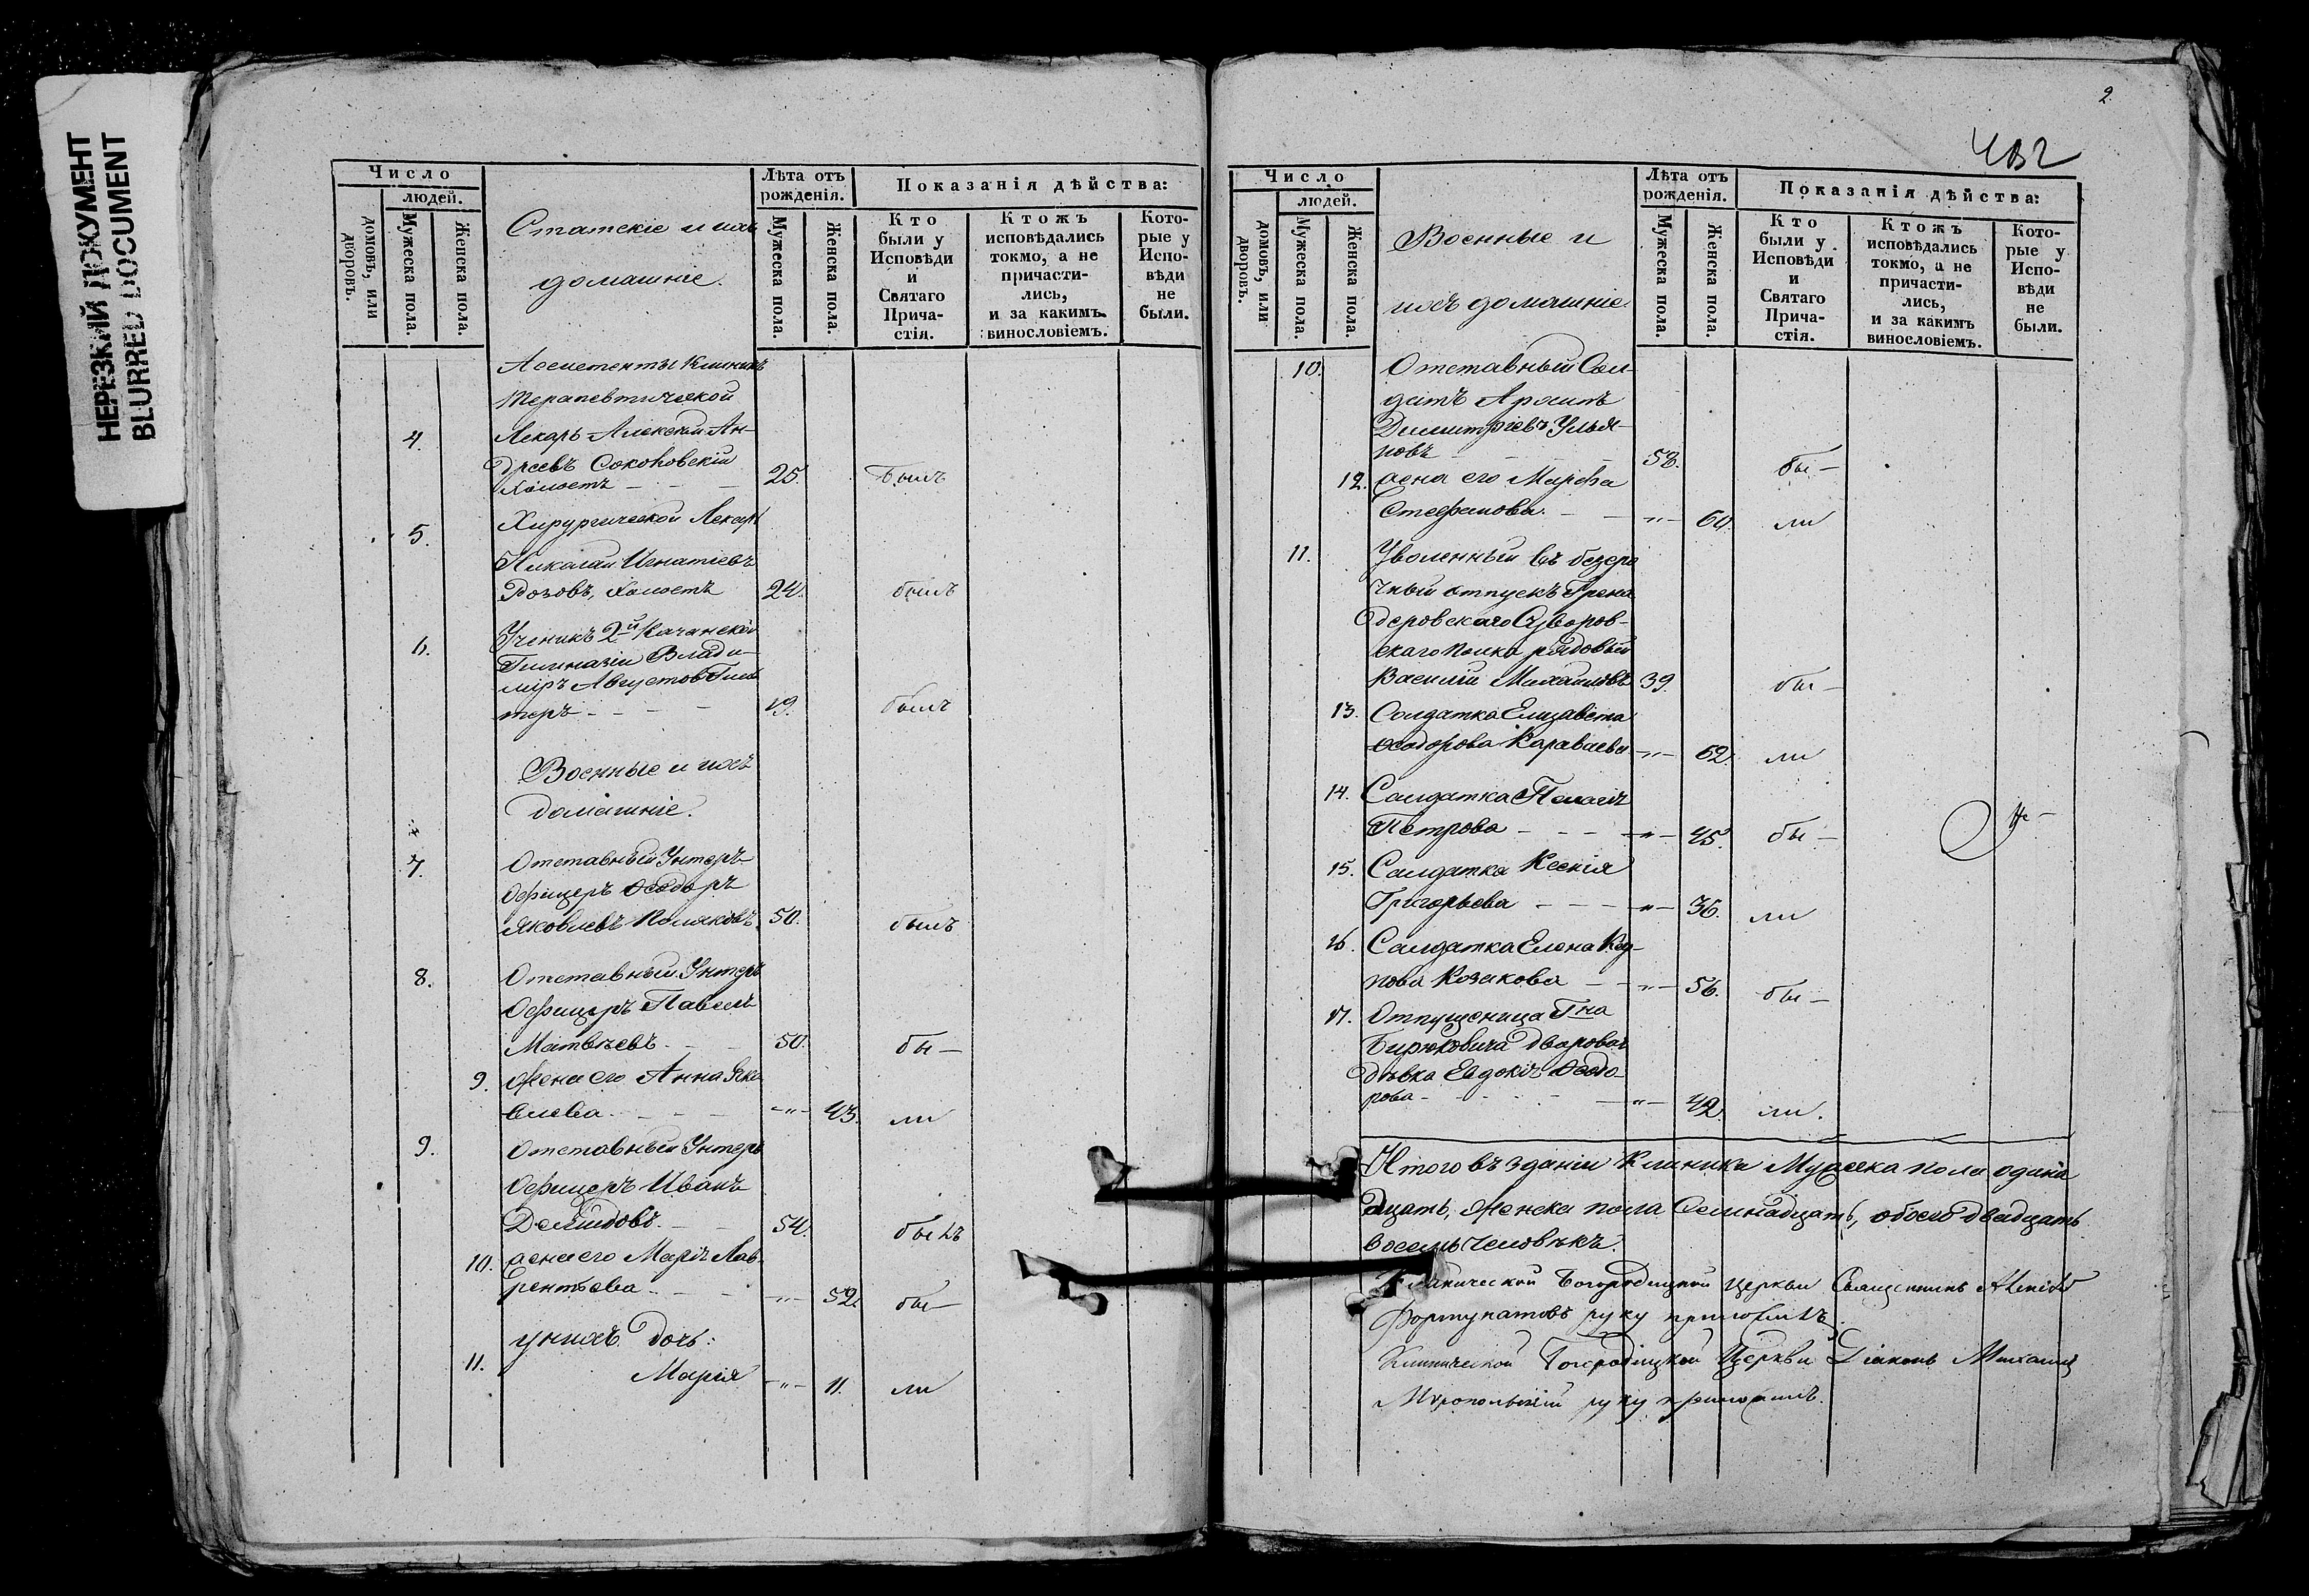 НЕРЕЗКИЙ ДОКУМЕНТ
BLURRED DOCUMENT
Число
людей.
домовъ, или дворовъ.
Мужеска пола.
Женска пола.
Статскіе и ихъ
домашніе.
Лѣта отъ рожденія.
Мужеска пола.
Женска пола.
Показанія дѣйства:
Кто были у Исповѣди и Святаго Причастія.
Ктожъ исповѣдались токмо, а не причастились, и за какимъ винословіемъ.
Которые у Исповѣди не были.
Ассистенты Клиникъ
Терапевтической
4. Лекарь Алексѣй Ан-
дреевъ Соколовскій
холостъ - - - 25. былъ
5. Хирургической Лекарь
Николай Игнатіевъ
Розовъ, холостъ 24. былъ
6. Ученикъ 2й Казанской
Гимназіи Влади-
міръ Августовъ
теръ - - - 19. былъ
Военные и ихъ
домашніе.
7. Отставный Унтеръ-
Офицеръ Ѳеодоръ
Яковлевъ Поляковъ 50. былъ
8. Отставный Унтеръ
Офицеръ Павелъ
Матвѣевъ - - 50. бы-
9. Жена его Анна Яко-
влева - - - -"- 43. ли
9. Отставный Унтеръ
Офицеръ Иванъ
Демидовъ - - 54. былъ
10. жена его Марія Лав-
рентьева - - - -"- 52. бы-
у нихъ дочь:
11. Марія -"- 11. ли
2
432
Число
людей.
домовъ, или дворовъ.
Мужеска пола.
Женска пола.
Военные и
ихъ домашніе
Лѣта отъ рожденія.
Мужеска пола.
Женска пола.
Показанія дѣйства:
Кто были у Исповѣди и Святаго Причастія.
Ктожъ исповѣдались токмо, а не причастились, и за какимъ винословіемъ.
Которые у Исповѣди не были.
10. Отставный Сол-
датъ Архипъ
Димитріевъ Улья-
новъ - - - 58. бы-
12. жена его Марѳа
Стефанова - - -"- 60. ли
11. Уволенный въ безсро
чный отпускъ Грена
деровскаго Суворов-
скаго полка рядовый
Василій Михайловъ 39. бы-
13. Солдатка Елизавета
Ѳеодорова Караваева -"- 62. ли
14. Салдатка Пелагія
Петрова - - - -"- 45. бы - Не -
15. Салдатка Ксенія
Григорьева - - - -"- 36. ли
16. Салдатка Елена
пова Козакова - - -"- 56. бы -
17. Отпущеница Гна
Бирюковича дворовая
дѣвка Евдокія Ѳеодо-
рова - - - -"- 42. ли.
Итого въ зданіи Клиники Мужеска пола одина
дцать, Женска пола Семнадцать, обоего двадцать
восемь человѣкъ.
Клинической Богородицкой церкви Священникъ Алексій
Фортунатовъ руку приложилъ.
Клинической Богородицкой Церкви Діаконъ Михаилъ
Миропольскій руку приложилъ.